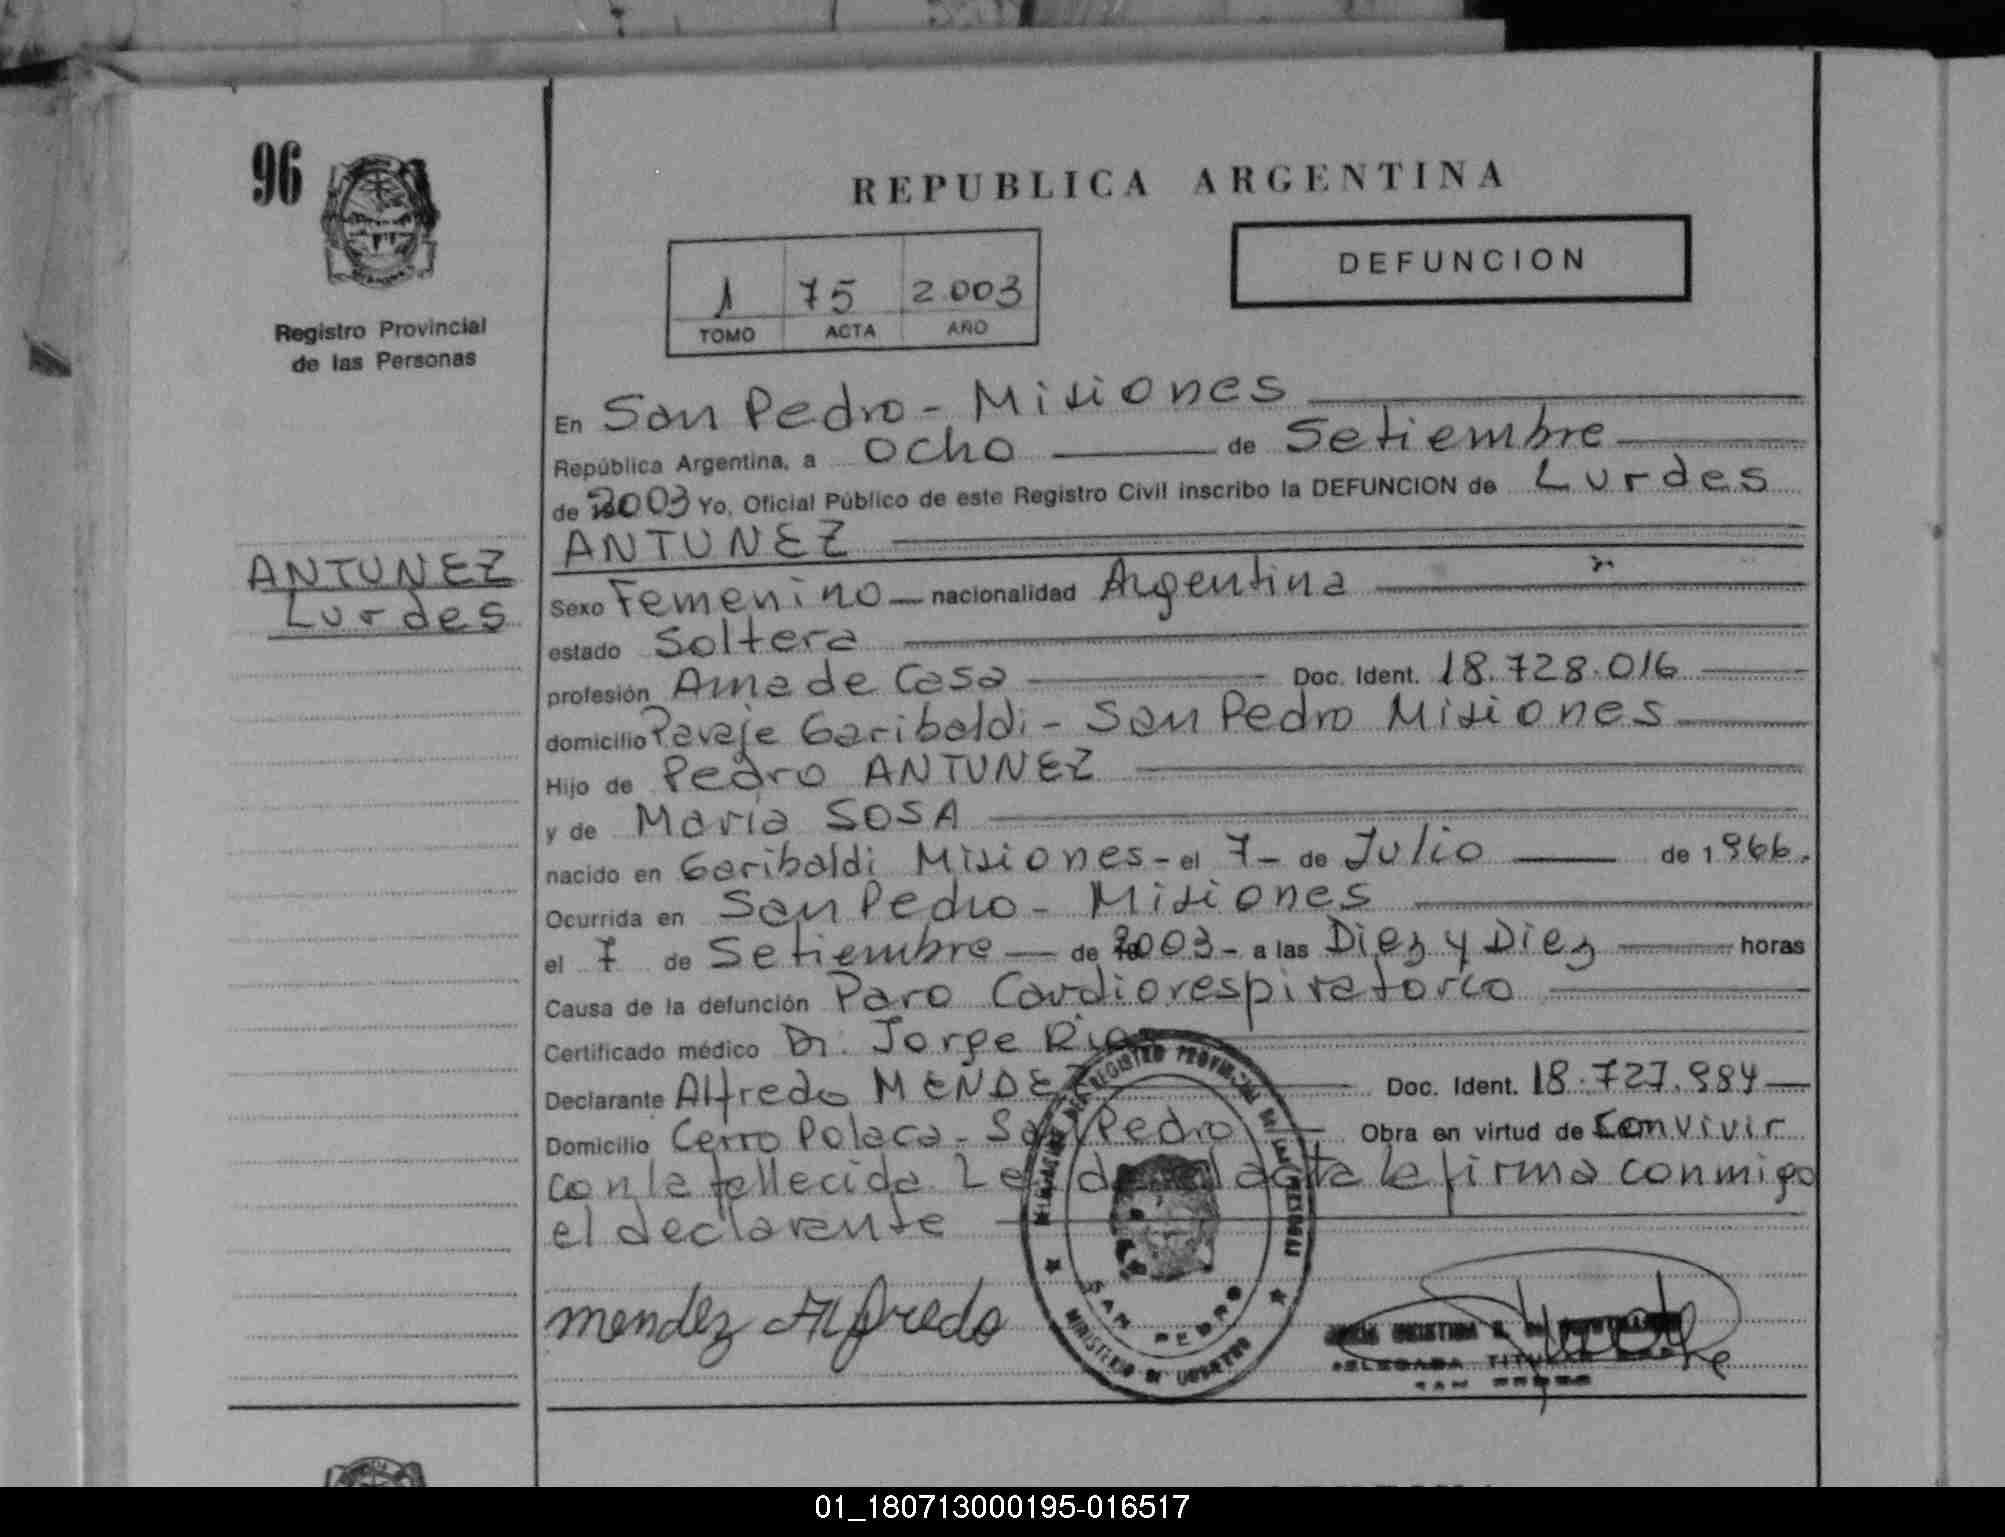 96
REPUBLICA ARGENTINA
DEFUNCION
1 75 2.003
TOMO ACTA AÑO
Registro Provincial
de las Personas
En San Pedro - Misiones
República Argentina, a Ocho de Setiembre
de 2003 Yo, Oficial Público de este Registro Civil inscribo la DEFUNCION de Lurdes
ANTUNEZ
ANTUNEZ
Lurdes
Sexo Femenino nacionalidad Argentina
estado Soltera
profesión Ama de Casa Doc. Ident. 18.728.016
domicilio Paraje Garibaldi - San Pedro Misiones
Hijo de Pedro ANTUNEZ
y de María SOSA
nacido en Garibaldi Misiones - el 7 - de Julio de 1966.
Ocurrida en San Pedro - Misiones
el 7 de Setiembre de 2003 - a las Diez y Diez horas
Causa de la defunción Paro Cardiorespiratorio
Certificado médico Dr. Jorge
Declarante Alfredo MENDEZ Doc. Ident. 18.727.984
Domicilio Cerro Polaca - San Pedro Obra en virtud de Convivir
con la fallecida. Leída el acta la firma conmigo
el declarante
mendez Alfredo
REGISTRO PROVINCIAL DE LAS PERSONAS
SAN PEDRO
MINISTERIO DE GOBIERNO
DELEGADA TITULAR
SAN PEDRO
01_180713000195-016517